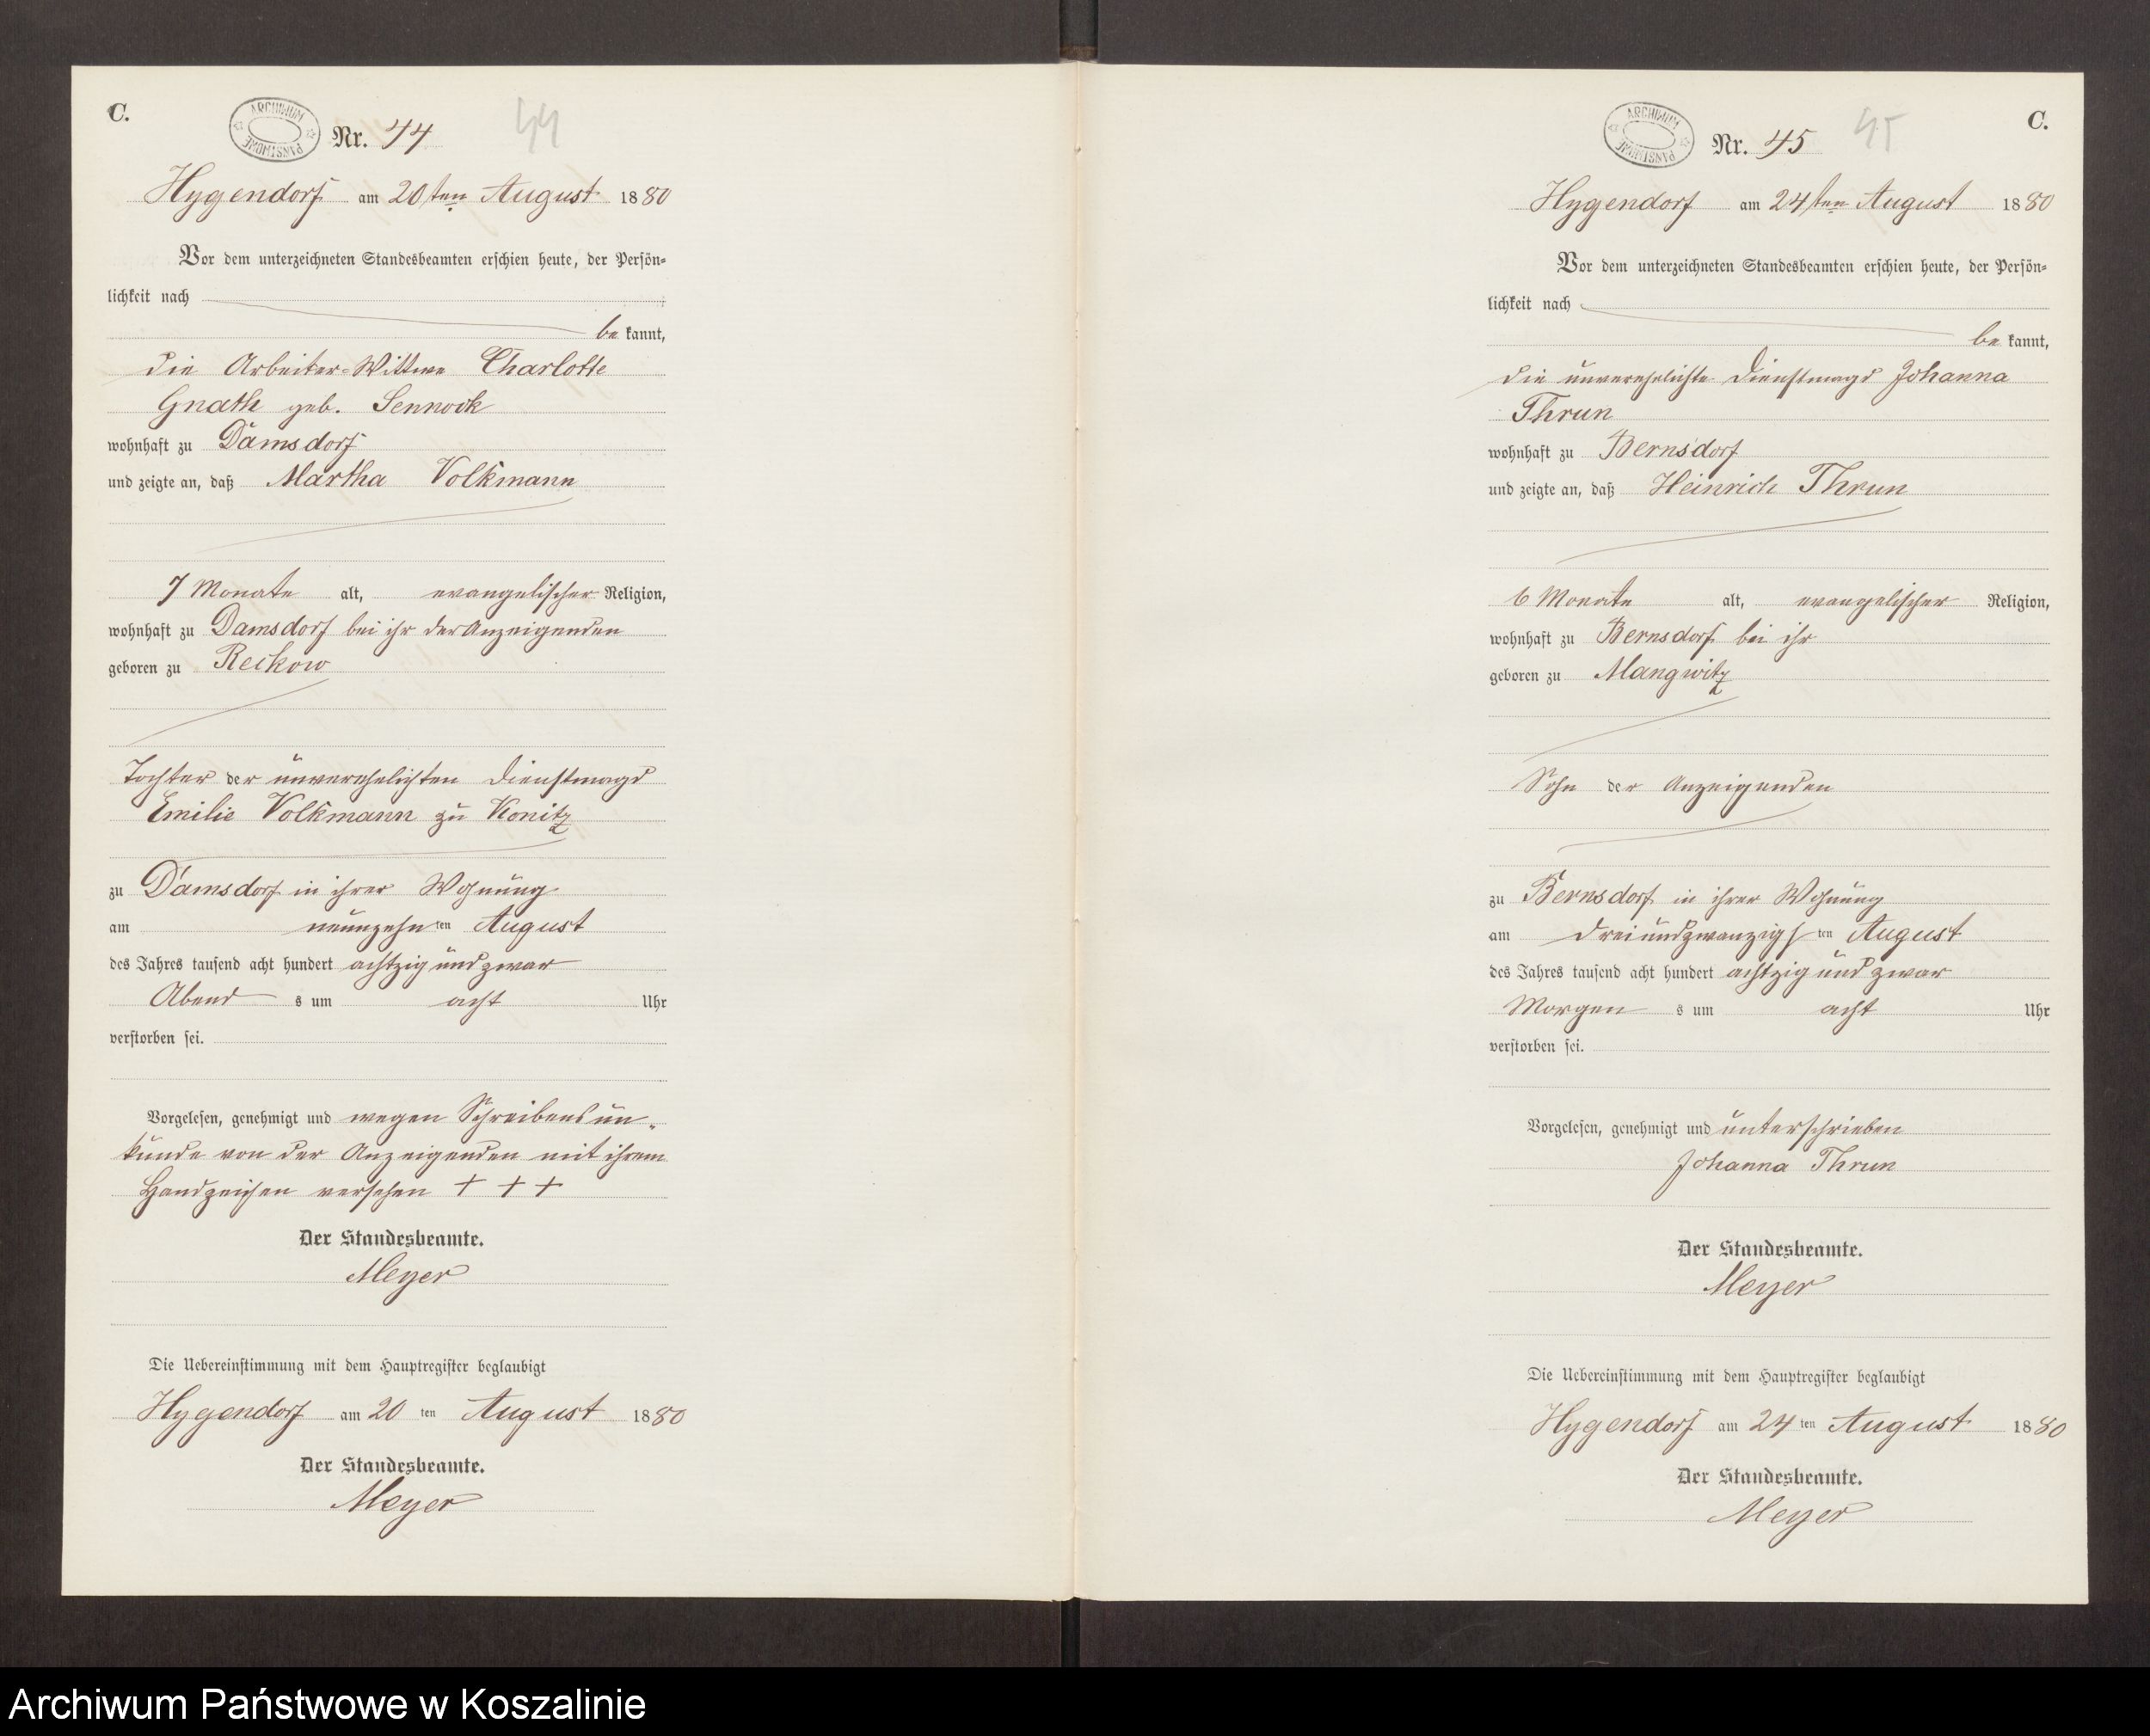 C.
ARCHIWUM PAŃSTWOWE
Nr. 44
44
Hygendorf am 20ten August 1880
Vor dem unterzeichneten Standesbeamten erschien heute, der Persön-
lichkeit nach
be kannt,
die Arbeiter-Wittwe Charlotte
Gnath geb. Sennock
wohnhaft zu Damsdorf
und zeigte an, daß Martha Volkmann
7 Monate alt, evangelischer Religion,
wohnhaft zu Damsdorf bei ihr der Anzeigenden
geboren zu Reckow
Tochter der unverehelichten Dienstmagd
Emilie Volkmann zu Konitz
zu Damsdorf in ihrer Wohnung
am neunzehn ten August
des Jahres tausend acht hundert achtzig und zwar
Abend s um acht Uhr
verstorben sei.
Vorgelesen, genehmigt und wegen Schreibensun-
kunde von der Anzeigenden mit ihrem
Handzeichen versehen + + +
Der Standesbeamte.
Meyer
Die Uebereinstimmung mit dem Hauptregister beglaubigt
Hygendorf am 20 ten August 1880
Der Standesbeamte.
Meyer
C.
ARCHIWUM PAŃSTWOWE
Nr. 45
45
Hygendorf am 24ten August 1880
Vor dem unterzeichneten Standesbeamten erschien heute, der Persön-
lichkeit nach
be kannt,
die unverehelichte Dienstmagd Johanna
Thrun
wohnhaft zu Bernsdorf
und zeigte an, daß Heinrich Thrun
6 Monate alt, evangelischer Religion,
wohnhaft zu Bernsdorf bei ihr
geboren zu Mangwitz
Sohn der Anzeigenden
zu Bernsdorf in ihrer Wohnung
am dreiundzwanzigs ten August
des Jahres tausend acht hundert achtzig und zwar
Morgen s um acht Uhr
verstorben sei.
Vorgelesen, genehmigt und unterschrieben
Johanna Thrun
Der Standesbeamte.
Meyer
Die Uebereinstimmung mit dem Hauptregister beglaubigt
Hygendorf am 24 ten August 1880
Der Standesbeamte.
Meyer
Archiwum Państwowe w Koszalinie